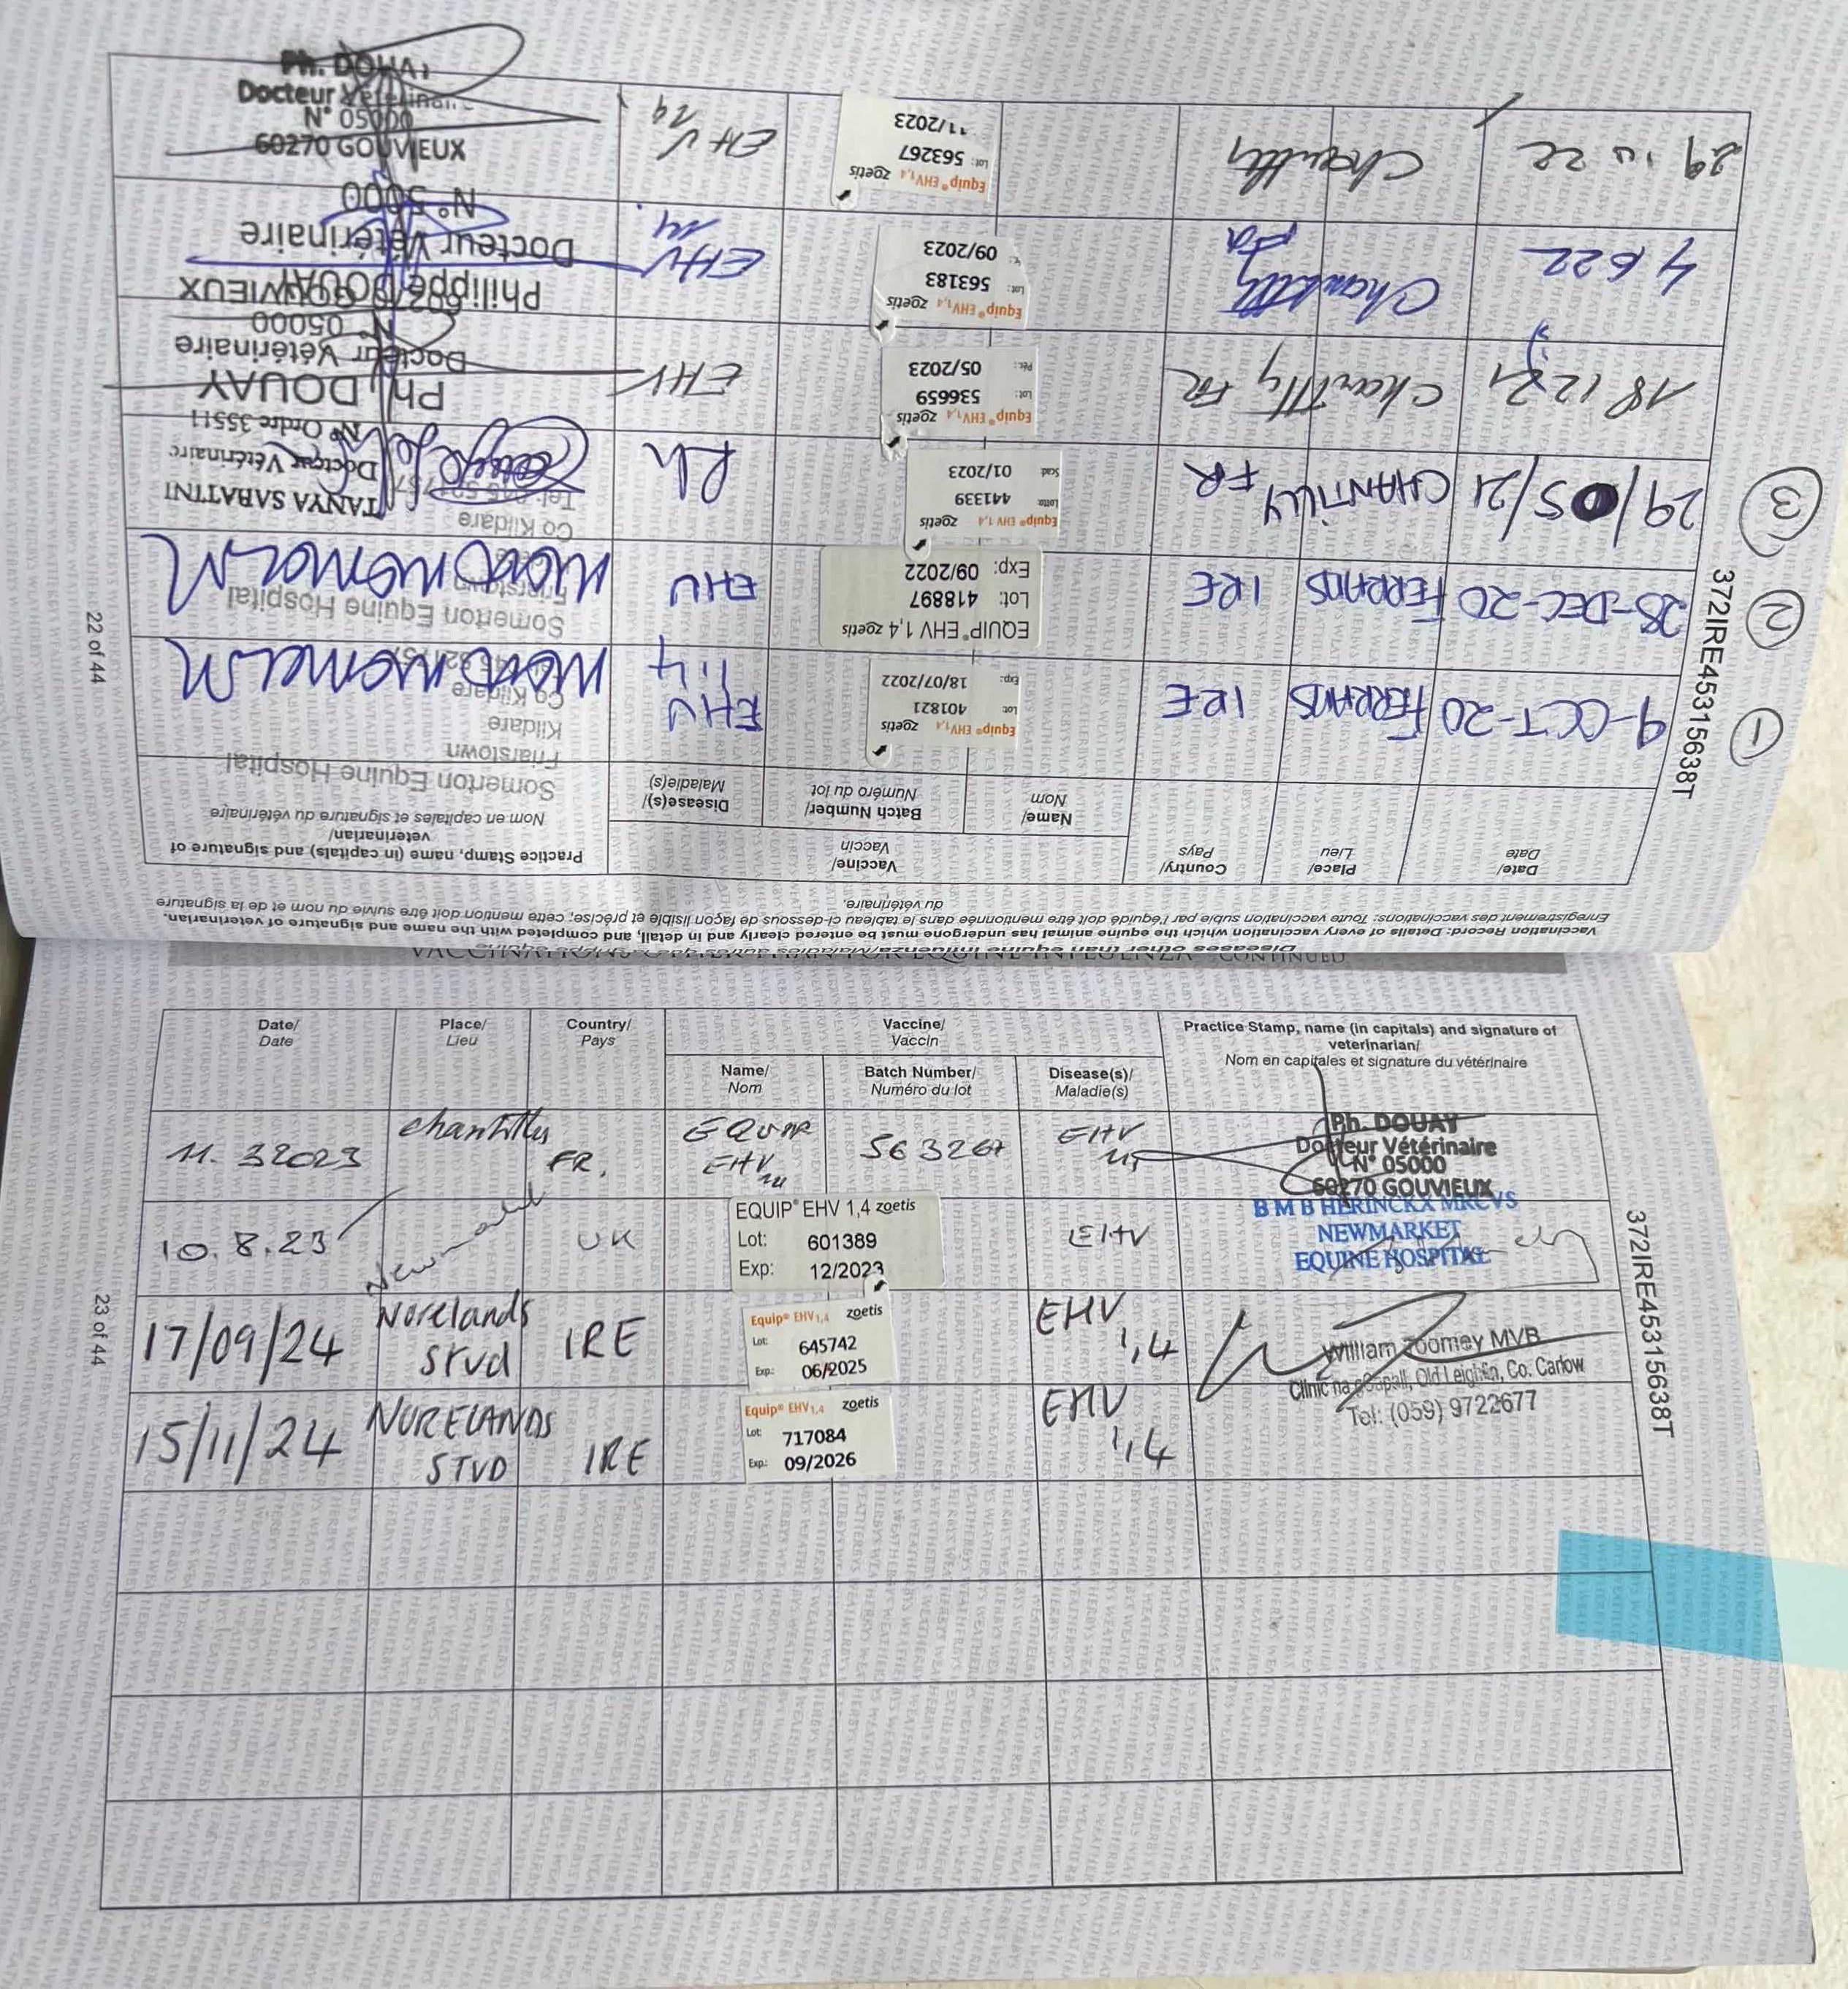 Diseases other than equine influenza/Maladies autres que la grippe équine
Vaccination Record: Details of every vaccination which the equine animal has undergone must be entered clearly and in detail, and completed with the name and signature of veterinarian.
Enregistrement des vaccinations: Toute vaccination subie par l'équidé doit être mentionnée dans le tableau ci-dessous de façon lisible et précise; cette mention doit être suivie du nom et de la signature
du vétérinaire.
Date/
Date
Place/
Lieu
Country/
Pays
Vaccine/
Vaccin
Name/
Nom
Batch Number/
Numéro du lot
Disease(s)/
Maladie(s)
Practice Stamp, name (in capitals) and signature of
veterinarian/
Nom en capitales et signature du vétérinaire
1
9-OCT-20 FERRANS IRE
Equip® EHV1,4 zoetis
Lot: 401821
Exp: 18/07/2022
EHV
1.4
Somerton Equine Hospital
Friarstown
Kildare
Co Kildare
2
28-DEC-20 FERRANS IRE
EQUIP® EHV 1,4 zoetis
Lot: 418897
Exp: 09/2022
EHV
Somerton Equine Hospital
Friarstown
Co Kildare
3
29/05/21 CHANTILLY FR
Equip® EHV 1,4 zoetis
Lotto: 441339
Scad: 01/2023
Rh
TANYA SABATINI
Docteur Vétérinaire
N° Ordre 35511
18 12 21 Chantilly FR
Equip® EHV1,4 zoetis
Lot: 536659
Pér.: 05/2023
EHV
Ph. DOUAY
Docteur Vétérinaire
N° 05000
60270 GOUVIEUX
4 6 22 Chantilly
Equip® EHV1,4 zoetis
Lot: 563183
09/2023
EHV
14
Philippe DOUAY
Docteur Vétérinaire
N° 5000
29 10 22 Chantilly
Equip® EHV1,4 zoetis
Lot: 563267
11/2023
EHV
14
Ph. DOUAY
Docteur Vétérinaire
N° 05000
60270 GOUVIEUX
372IRE45315638T
22 of 44
VACCINATIONS FOR EQUINE INFLUENZA - CONTINUED
Date/
Date
Place/
Lieu
Country/
Pays
Vaccine/
Vaccin
Name/
Nom
Batch Number/
Numéro du lot
Disease(s)/
Maladie(s)
Practice Stamp, name (in capitals) and signature of
veterinarian/
Nom en capitales et signature du vétérinaire
11. 3 2023 Chantilly FR.
EHV
563267
EHV
Ph. DOUAY
Docteur Vétérinaire
N° 05000
60270 GOUVIEUX
10.8.23 Newmarket UK
EQUIP® EHV 1,4 zoetis
Lot: 601389
Exp: 12/2023
EHV
B M B HERINCKX MRCVS
NEWMARKET
EQUINE HOSPITAL
17/09/24 Norelands Stud IRE
Equip® EHV1,4 zoetis
Lot: 645742
Exp.: 06/2025
EHV
1,4
William Toomey MVB
Clinic na gCapall, Old Leighlin, Co. Carlow
Tel: (059) 9722677
15/11/24 NORELANDS STUD IRE
Equip® EHV1,4 zoetis
Lot: 717084
Exp.: 09/2026
EHV
1,4
372IRE45315638T
23 of 44